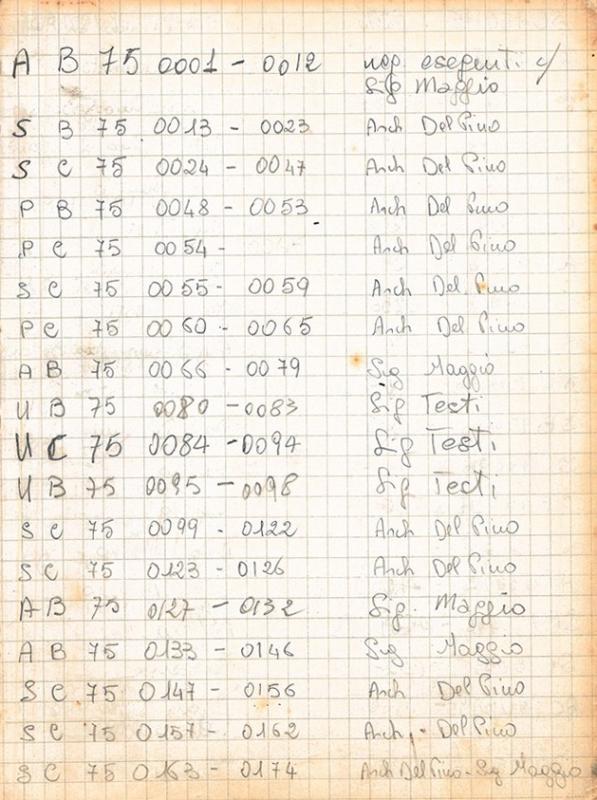 A B 75 0001 - 0012 neg. eseguiti c/
Sig Maggio
S B 75 0013 - 0023 Arch Del Pino
S C 75 0024 - 0047 Arch Del Pino
P B 75 0048 - 0053 Arch Del Pino
P C 75 0054 - Arch Del Pino
S C 75 0055 - 0059 Arch Del Pino
P C 75 0060 - 0065 Arch Del Pino
A B 75 0066 - 0079 Sig Maggio
U B 75 0080 - 0083 Sig Testi
U C 75 0084 - 0094 Sig Testi
U B 75 0095 - 0098 Sig Testi
S C 75 0099 - 0122 Arch Del Pino
S C 75 0123 - 0126 Arch Del Pino
A B 75 0127 - 0132 Sig. Maggio
A B 75 0133 - 0146 Sig Maggio
S C 75 0147 - 0156 Arch Del Pino
S C 75 0157 - 0162 Arch. Del Pino
S C 75 0163 - 0174 Arch Del Pino - Sig Maggio